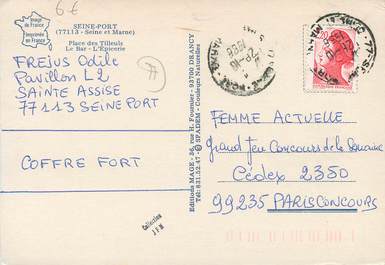 6€
Image
de France
Imprimée
en France
SEINE-PORT
(77113 - Seine et Marne)
Place des Tilleuls
Le Bar - L'Epicerie
FREJUS Odile
Pavillon L2
SAINTE ASSISE
77113 SEINE PORT
COFFRE FORT
77
Editions MAGE - 36, rue H. Fournier - 93700 DRANCY
Tél: 831.52.47 - © SPADEM - Couleurs Naturelles
Collection
JFM
FEMME ACTUELLE
Grand Jeu Concours de la Semaine
Cédex 2350
99235 PARIS CONCOURS